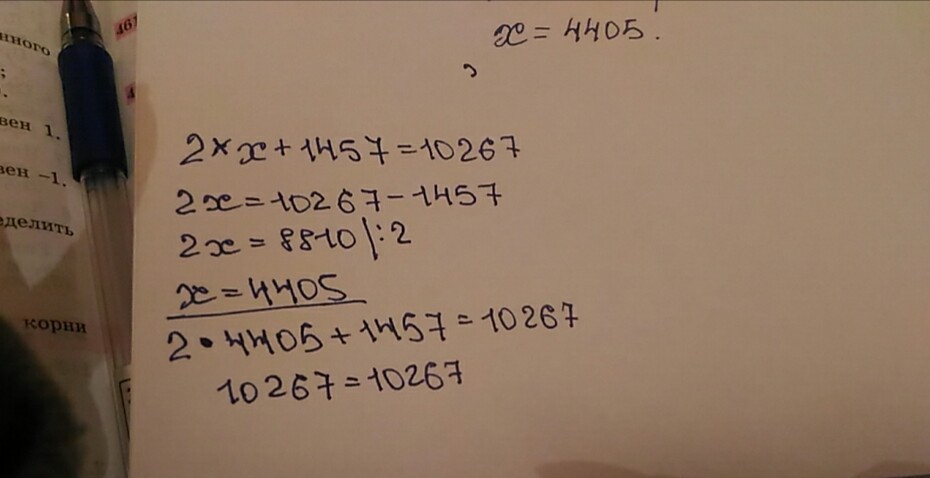 нного
461
;
вен 1.
вен −1.
еделить
корни
x = 4405.
2 × x + 1457 = 10267
2x = 10267 − 1457
2x = 8810 |:2
x = 4405
2 • 4405 + 1457 = 10267
10267 = 10267